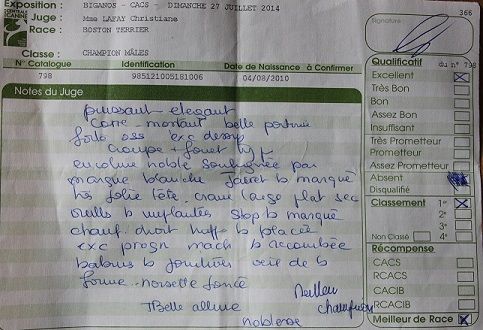 CENTRALE CANINE
Exposition : BIGANOS - CACS - DIMANCHE 27 JUILLET 2014
Juge : Mme LAFAY Christiane
Race : BOSTON TERRIER
Classe : CHAMPION MÂLES
N° Catalogue Identification Date de Naissance à Confirmer
798 985121005181006 04/08/2010
Notes du Juge
puissant - elegant
Carré - montant belle poitrine
forte oss exc dessus
croupe + fouet
encolure noble soulignée par
marque blanche Jarret b marqué
très jolie tête - crane large plat sec
oreilles b implantées stop b marqué
chanf droit truffe b placée
exc progn mach b recourbée
babines b jointives oeil de b
forme - noisette foncé
Belle allure
Meilleur
champion
noblesse
366
Signature
Qualificatif du n° 798
Excellent
Très Bon
Bon
Assez Bon
Insuffisant
Très Prometteur
Prometteur
Assez Prometteur
Absent
Disqualifié
Classement 1er
2e
3e
Non Classé 4e
Récompense
CACS
RCACS
CACIB
RCACIB
Meilleur de Race